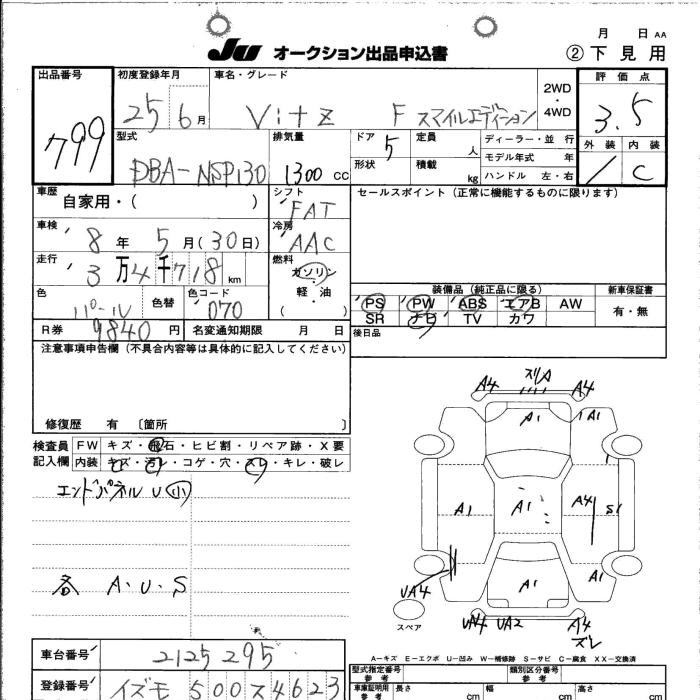 月 日 AA
JU オークション出品申込書 ②下見用
出品番号 799
初度登録年月 25 6月
車名・グレード Vitz F スマイルエディション
2WD・4WD
評価点 3.5
外装 内装 C
型式 DBA-NSP130
排気量 1300 CC
ドア 5 形状
定員 人
積載 kg
ディーラー・並行
モデル年式 年
ハンドル 左・右
車歴 自家用・( )
シフト FAT
セールスポイント(正常に機能するものに限ります)
車検 8年 5月(30日)
冷房 AAC
走行 3万4千718km
燃料 ガソリン・軽油 ( )
色 パール 色替
色コード 070
装備品(純正品に限る) 新車保証書
PS PW ABS エアB AW 有・無
SR ナビ TV カワ
R券 9840円 名変通知期限 月 日
後日品
注意事項申告欄(不具合内容等は具体的に記入してください)
修復歴 有〔箇所 〕
検査員 FW キズ・飛石・ヒビ割・リペア跡・X要
記入欄 内装 キズ・汚レ・コゲ・穴・スレ・キレ・破レ
エンドパネル U 小
各 A・U・S
A4 ズレA A4
A1 A1
A1 A1 A4 S1
UA4 A1 A1
スペア
UA4 UA2 A4
ズレ
A-キズ E-エクボ U-凹み W-補修跡 S-サビ C-腐食 XX-交換済
車台番号 2125295
型式指定番号 参考 類別区分番号 参考
登録番号 イズモ 500 ス 4623
車庫証明用 参考 長さ cm 幅 cm 高さ cm